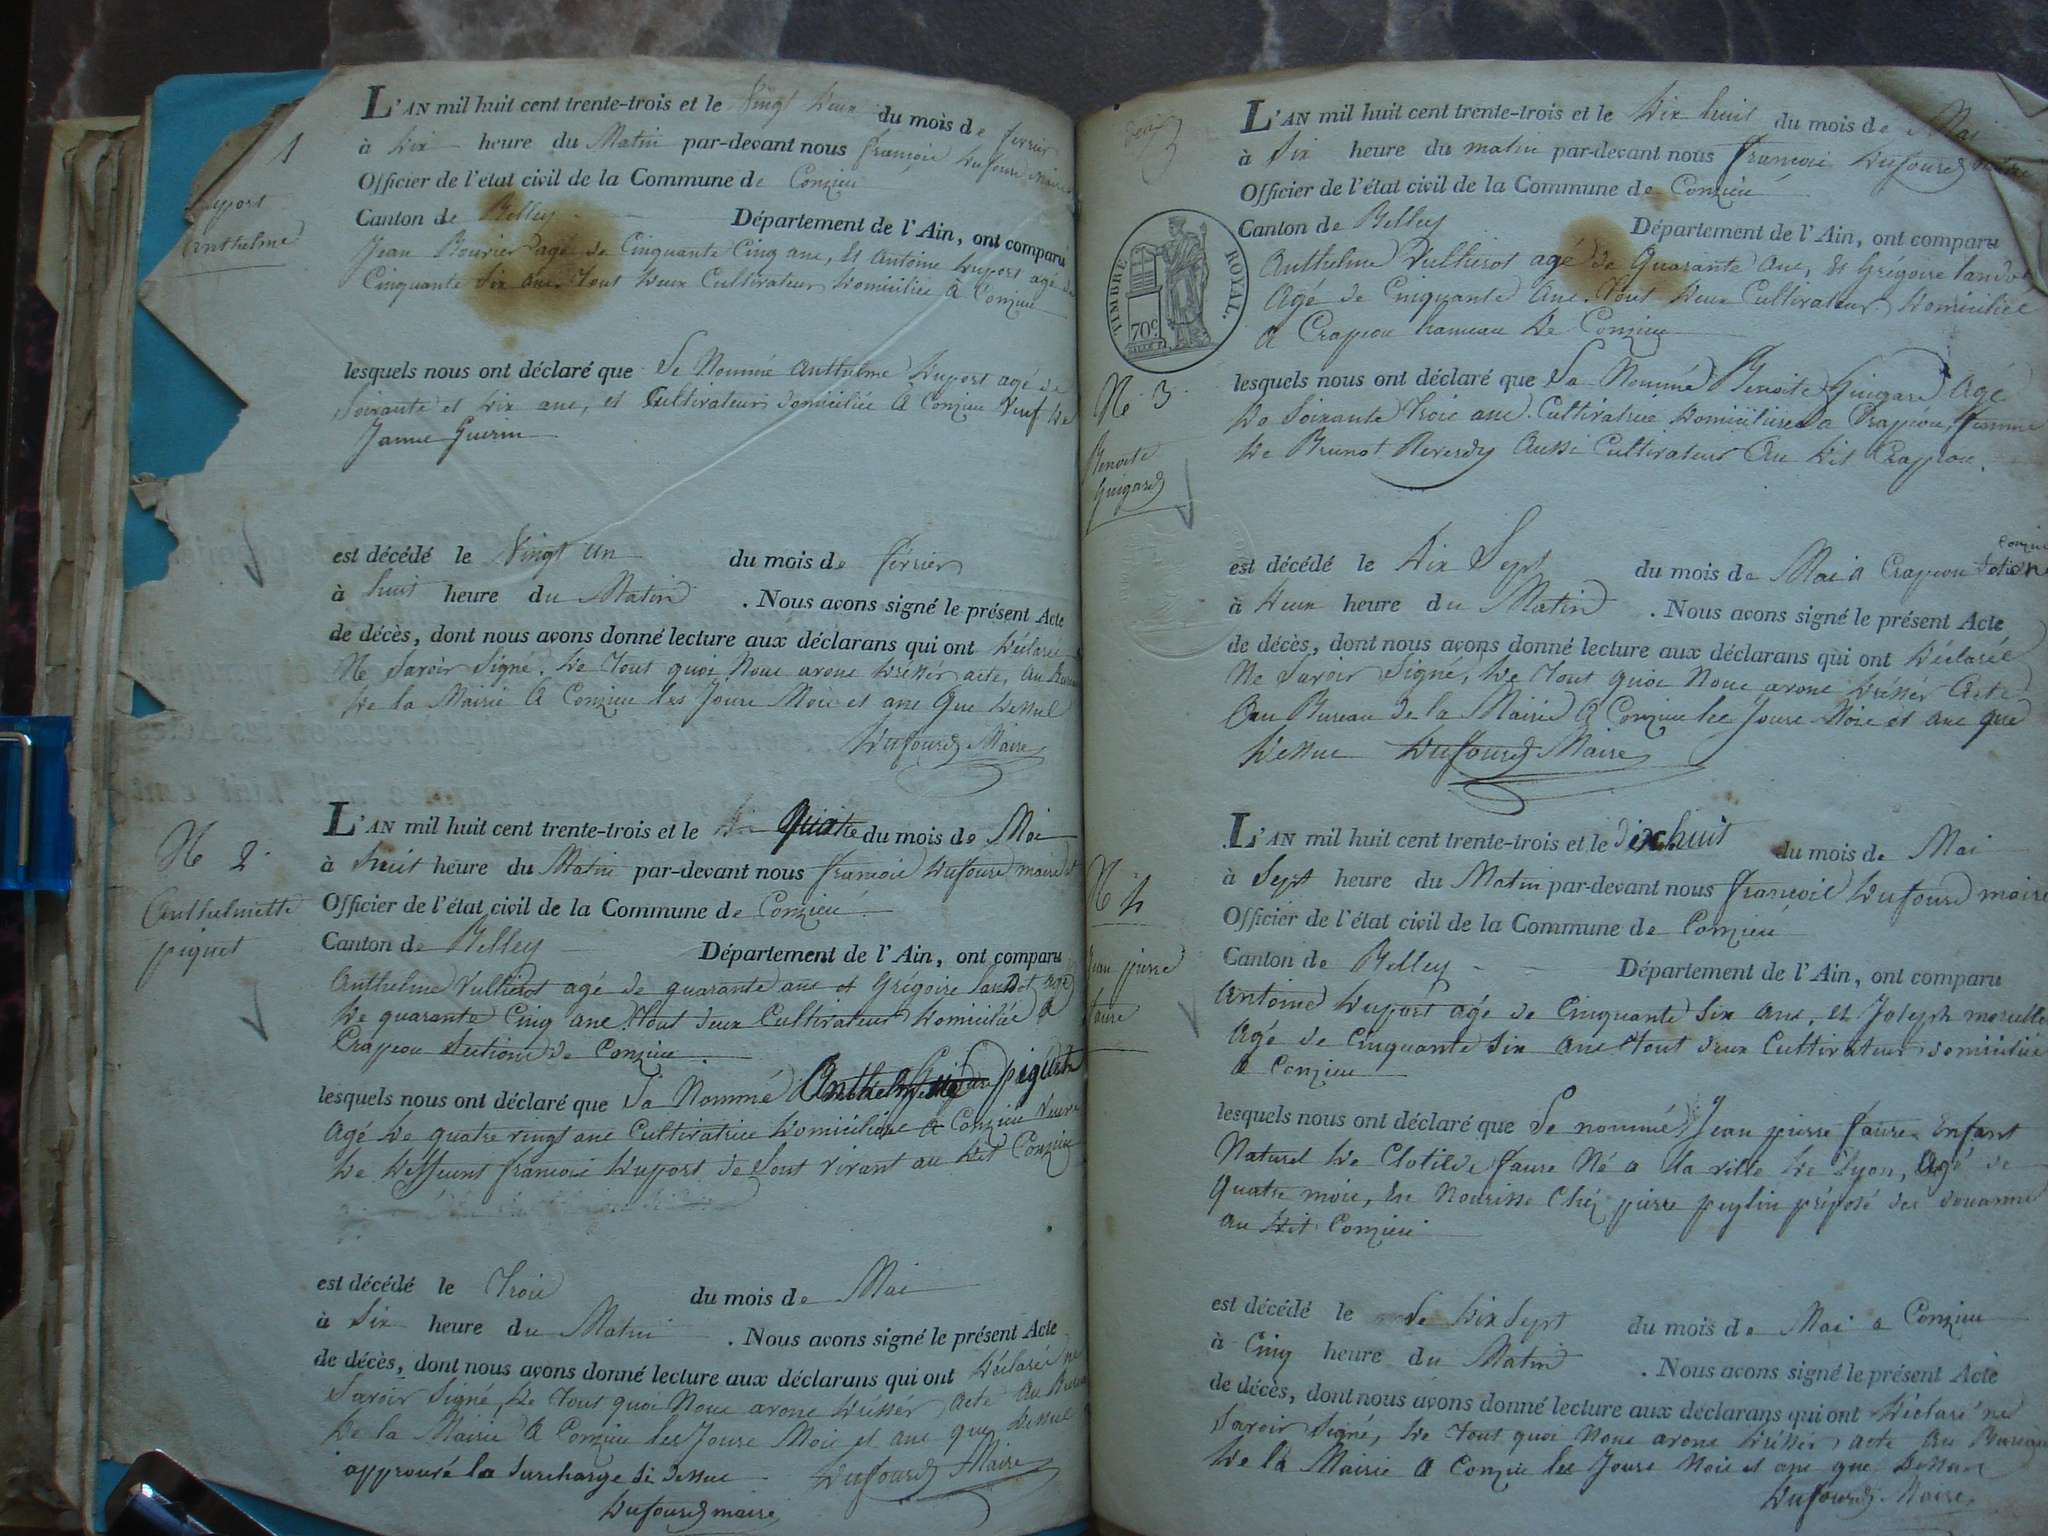 1
Anthelme
L'AN mil huit cent trente-trois et le Vingt deux du mois de fevrier
à dix heure du Matin par-devant nous francois Dufourd maire
Officier de l'état civil de la Commune de Conzieu
Canton de Belley Département de l'Ain, ont comparu
Jean Bouvier agé de Cinquante Cinq ans, Et Antoine Duport agé de
Cinquante Six ans. Tout deux Cultivateur Domiciliée A Conzieu
lesquels nous ont déclaré que Le Nommé Anthelme Duport agé de
Soixante et dix ans, et Cultivateur domiciliée A Conzieu Veuf de
Janne Guerin
est décédé le Vingt un du mois de fevrier
à huit heure du Matin . Nous avons signé le présent Acte
de décès, dont nous avons donné lecture aux déclarans qui ont Déclarée
Ne Savoir Signé. De Tout quoi Nous avons Drésser acte, Au Bureau
De la Mairie A Conzieu les Jours Mois et ans Que Dessus
Dufourd Maire
N 2.
Anthelmette
piquet
L'AN mil huit cent trente-trois et le Quatre du mois de Mai
à huit heure du Matin par-devant nous francois Dufourd maire et
Officier de l'état civil de la Commune de Conzieu
Canton de Belley Département de l'Ain, ont comparu
Anthelme Vullierot agé de quarante ans et Grégoire landot agé
De quarante Cinq ans Tout deux Cultivateur Domiciliée A
Crapeou Section de Conzieu
lesquels nous ont déclaré que La Nommé
Agé De quatre vingt ans Cultivatrice Domiciliée A Conzieu Veuve
De Deffeunt francois Duport de Sont vivant au dit Conzieu
est décédé le Trois du mois de Mai
à Six heure du Matin . Nous avons signé le présent Acte
de décès, dont nous avons donné lecture aux déclarans qui ont Déclarée ne
Savoir Signé, De Tout quoi Nous avons Drésser Acte Au Bureau
De la Mairie A Conzieu les Jours Mois et ans que Dessus
approuvé la Surcharge Si dessus Dufourd Maire
Dufourd maire
TIMBRE ROYAL.
70c
N. 3.
Benoite
Guigard
L'AN mil huit cent trente-trois et le Dix huit du mois de Mai
à Six heure du matin par-devant nous francois Dufourd Maire
Officier de l'état civil de la Commune de Conzieu
Canton de Belley Département de l'Ain, ont comparu
Anthelme Vullierot agé de Quarante ans, Et Grégoire landot
Agé de Cinquante ans. Tout deux Cultivateur Domiciliée
A Crapeou hameau de Conzieu
lesquels nous ont déclaré que La Nommé Benoite Guigard Agé
De Soixante Trois ans. Cultivatrice Domiciliée a Crapeou, femme
De Brunot Reverdy Aussi Cultivateur Au dit Crapeou.
est décédé le dix Sept du mois de Mai a Crapeou
à deux heure du Matin . Nous avons signé le présent Acte
de décès, dont nous avons donné lecture aux déclarans qui ont Déclarée
Ne Savoir Signé, De Tout quoi Nous avons Drésser Acte
Au Bureau de la Mairie A Conzieu les Jours Mois et ans que
Dessus Dufourd Maire
N 4
Jean pierre
faure
L'AN mil huit cent trente-trois et le dix huit du mois de Mai
à Sept heure du Matin par-devant nous francois Dufourd maire
Officier de l'état civil de la Commune de Conzieu
Canton de Belley Département de l'Ain, ont comparu
Antoine Duport agé de Cinquante Six ans, Et Joseph
Agé de Cinquante Six ans Tout deux Cultivateur domiciliée
A Conzieu
lesquels nous ont déclaré que Le nommé Jean pierre faure Enfant
Naturel De Clotilde faure Né a la ville de Lyon, Agé de
Quatre mois, En Nourisse Chéz pierre peylin préposé des douanne
au dit Conzieu
est décédé le Le Dix Sept du mois de Mai a Conzieu
à Cinq heure du Matin . Nous avons signé le présent Acte
de décès, dont nous avons donné lecture aux déclarans qui ont Déclaré ne
Savoir Signé, De Tout quoi Nous avons Drésser acte Au Bureau
De la Mairie A Conzieu les Jours Mois et ans que Dessus
Dufourd Maire